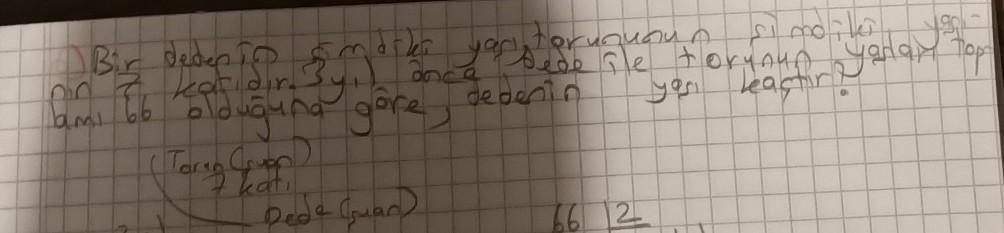 Bir dedenin şimdiki yaşı, torununun şimdiki yaşı-
nın 7 katıdır. 3 yıl önce dede ile torunun yaşları top
lamı 66 olduğuna göre, dedenin yaşı kaçtır?
Torun (şuan)
7 katı
Dede (şuan)
66 2